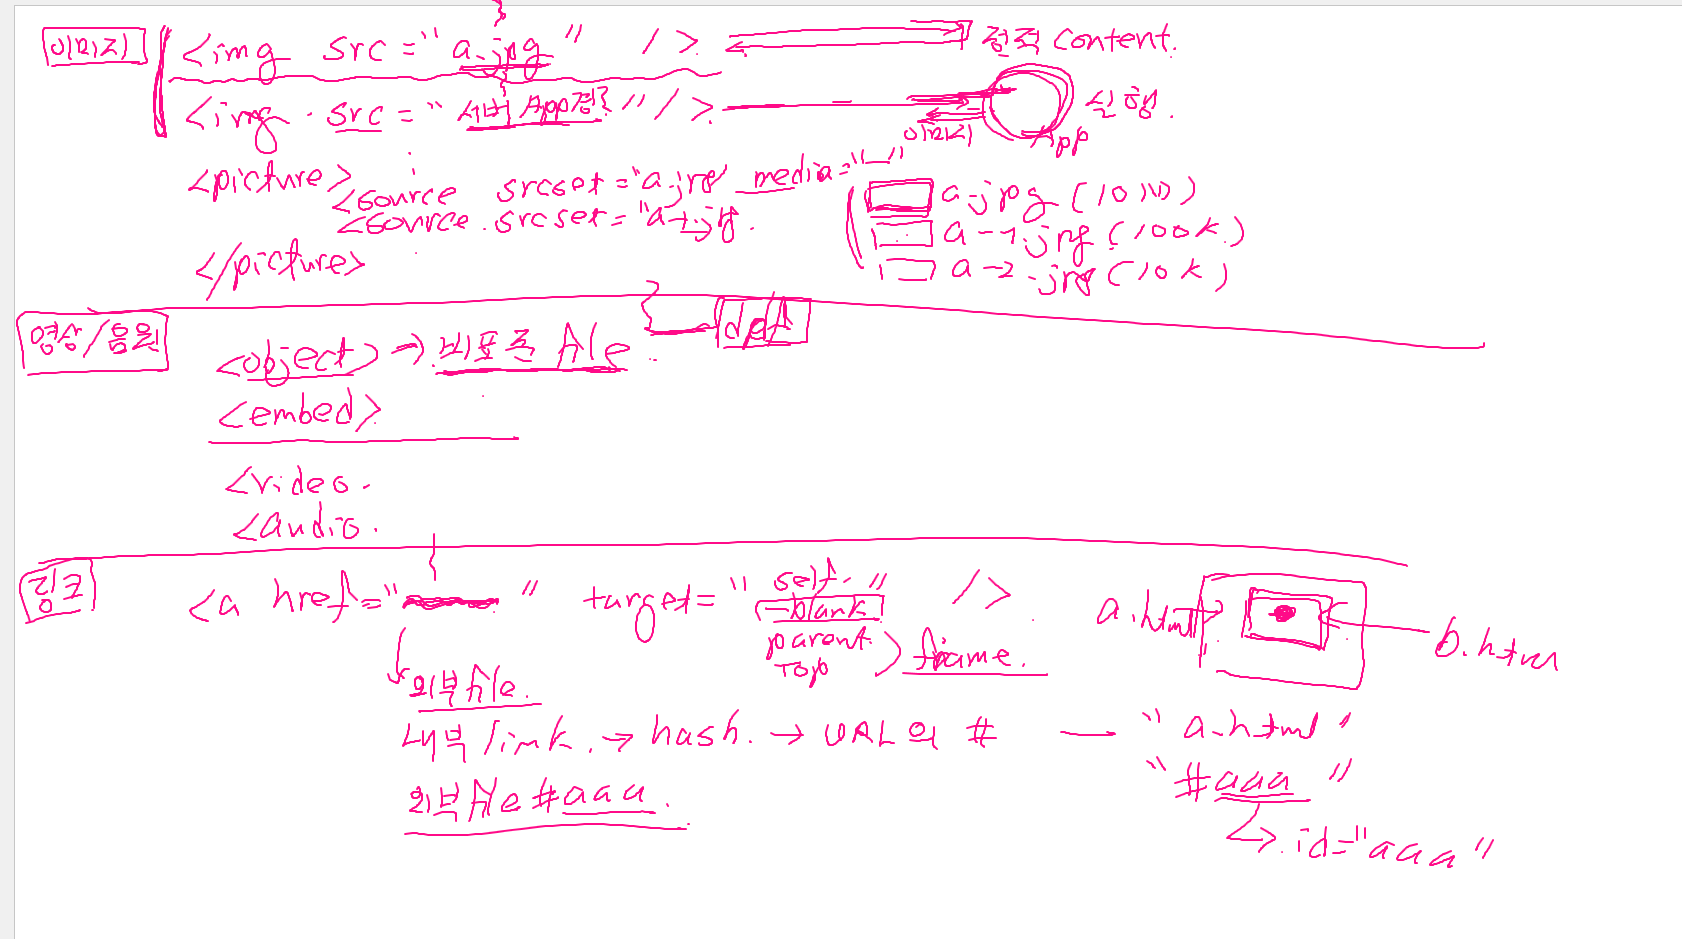 이미지
<img src="a.jpg" />
정적 Content.
<img src="서버 App경로" />
이미지
App
실행.
<picture>
<source srcset="a.jpg media=" "
<source srcset="a-1.jpg.
</picture>
a.jpg (10M)
a-1.jpg (100k)
a-2.jpg (10k)
영상/음원
<object> → 비표준 file.
pdf
<embed>
<video.
<audio.
링크
<a href=" " target=" " />
self.
_blank
parent.
Top
frame.
a.html
b.html
외부 file.
내부 link. → hash. → URL의 # — "a.html"
외부 file #aaa.
"#aaa"
→ id="aaa"